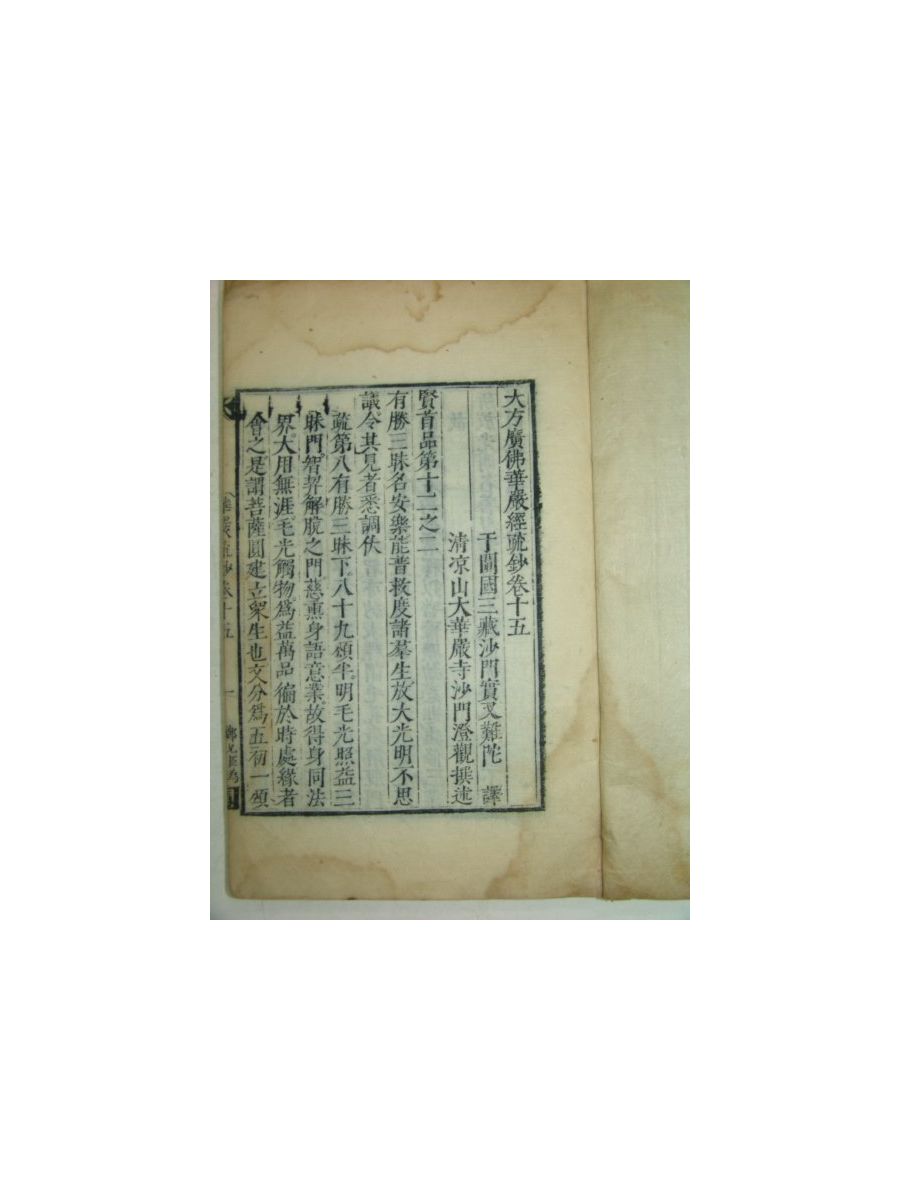 大方廣佛華嚴經疏鈔卷十五
于闐國三藏沙門實叉難陀 譯
清涼山大華嚴寺沙門澄觀撰述
賢首品第十二之二
有勝三昧名安樂能普救度諸羣生放大光明不思
議令其見者悉調伏
疏第八有勝三昧下八十九頌半明毛光照益三
昧門智界解脫之門慈熏身語意業故得身同法
界大用無涯毛光觸物為益萬品徧於時處緣者
會之是謂菩薩圓建立眾生也文分為五初一頌
華嚴疏鈔卷十五
一